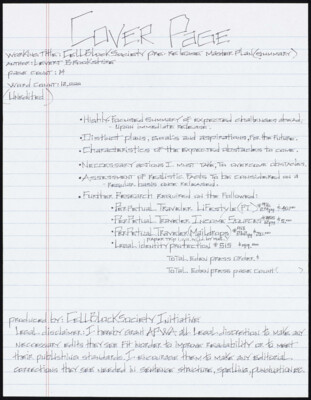 Cover Page
Working Title: CellBlockSociety Pre-Release Master Plan (Summary)
Author: Levert Brookshire
page count: 14
word count:
(unedited)
• Highly Focused Summary of expected challenges ahead, upon immediate release.
• Distinct plans, goals and aspirations, for the future.
• Characteristics of the expected obstacles to come.
• Neccessary actions I must take, to overcome obstacles.
• Assessment of Realistic Tasks to be considered on a Regular basis once released.
• Further Research required on the following:
• Perpetual Traveler Lifestyle
• Perpetual Traveler Income Sources
• Perpetual Traveler/Maildrops
• Legal Identity protection $515
Total Eden press order: $
Total Eden press page count ( )
produced by: CellBlockSociety Initiative
Legal disclaimer: I hereby grant APWA all legal discretion to make any
neccessary edits they see fit in order to improve readability or to meet
their publishing standards. I encourage them to make any editorial
corrections they see needed in sentence structure, spelling, punctuation etc.